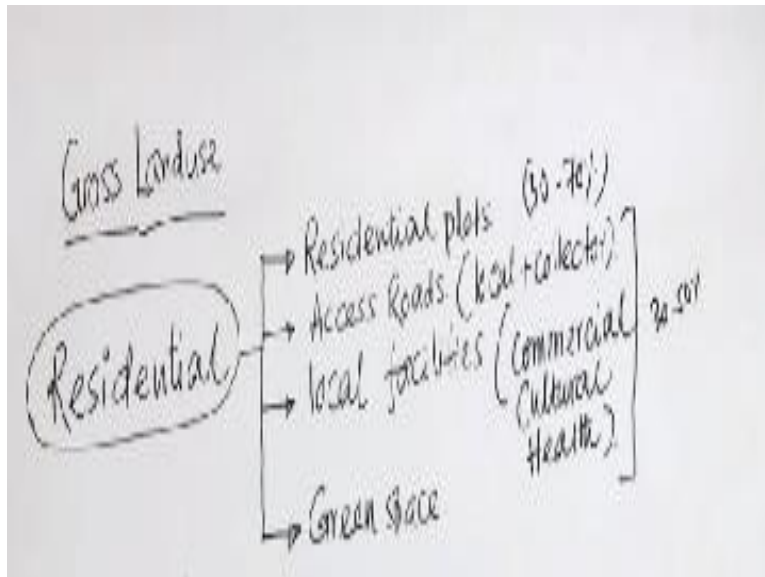 Gross Landuse
Residential
Residential plots (50-70%)
Access Roads (local + collector)
local facilities (commercial
Cultural
Health)
Green space